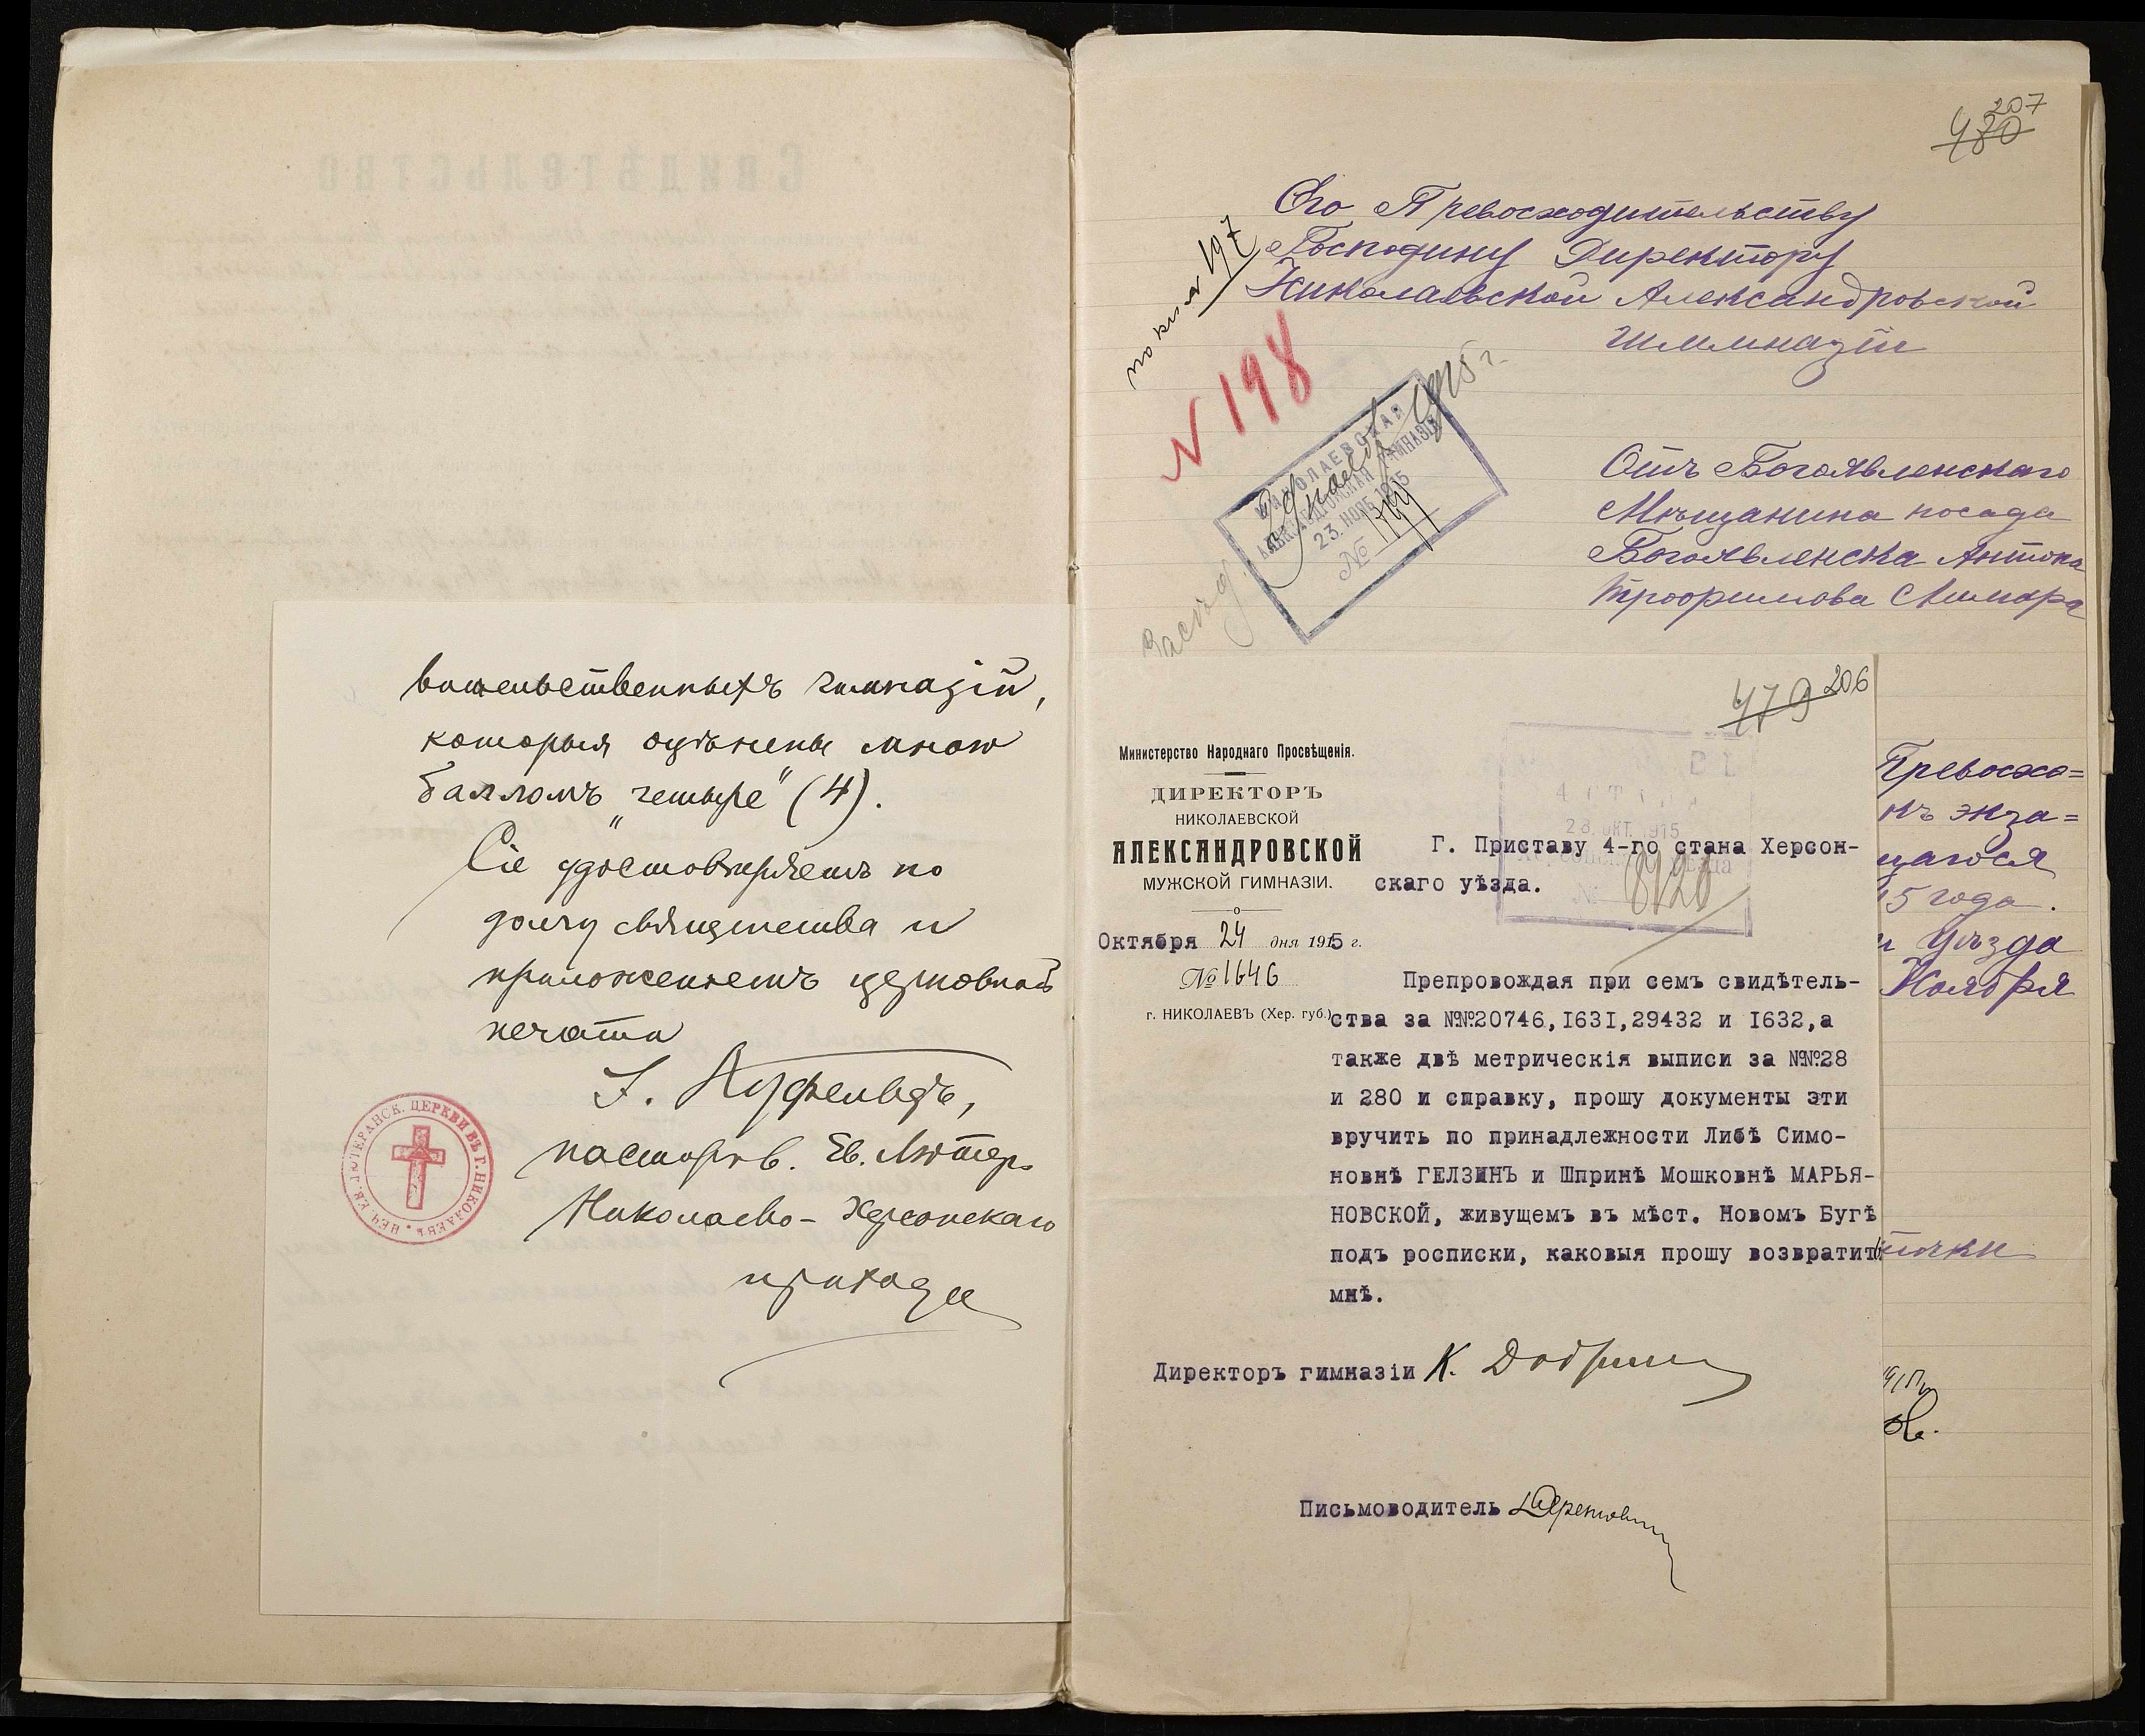 вительственныхъ гимназій,
которыя оцѣнены мною
балломъ „четыре" (4).
Сіе удостовѣряетъ по
долгу священства и
приложеніемъ церковной
печати
пасторъ Ев. Лютер.
Николаево-Херсонскаго
прихода
ПЕЧ. ЕВ. ЛЮТЕРАНСК. ЦЕРКВИ ВЪ Г. НИКОЛАЕВѢ
207
480
Его Превосходительству
Господину Директору
Николаевской Александровской
Гимназіи
197
N 198
1915 г.
НИКОЛАЕВСКАЯ
АЛЕКСАНДРОВСКАЯ ГИМНАЗІЯ
23. НОЯБ. 1915
№
Отъ Богоявленскаго
Мѣщанина посада
Богоявленска Антона
Трофимова
479 206
Министерство Народнаго Просвѣщенія.
ДИРЕКТОРЪ
НИКОЛАЕВСКОЙ
АЛЕКСАНДРОВСКОЙ
МУЖСКОЙ ГИМНАЗІИ.
Октября 24 дня 1915 г.
№ 1646
г. НИКОЛАЕВЪ (Хер. губ.)
28. ОКТ. 1915
№ 8120
Г. Приставу 4-го стана Херсон-
скаго уѣзда.
Препровождая при семъ свидѣтель-
ства за №№20746,I63I,29432 и I632,а
также двѣ метрическія выписи за №№28
и 280 и справку, прошу документы эти
вручить по принадлежности Либѣ Симо-
новнѣ ГЕЛЗИНЪ и Шпринѣ Мошковнѣ МАРЬЯ-
НОВСКОЙ, живущемъ въ мѣст. Новомъ Бугѣ
подъ росписки, каковыя прошу возвратить
мнѣ.
Директоръ гимназіи К.
Письмоводитель
Превосхо=
къ экза=
щагося
5 года.
и Уѣзда
Ноября